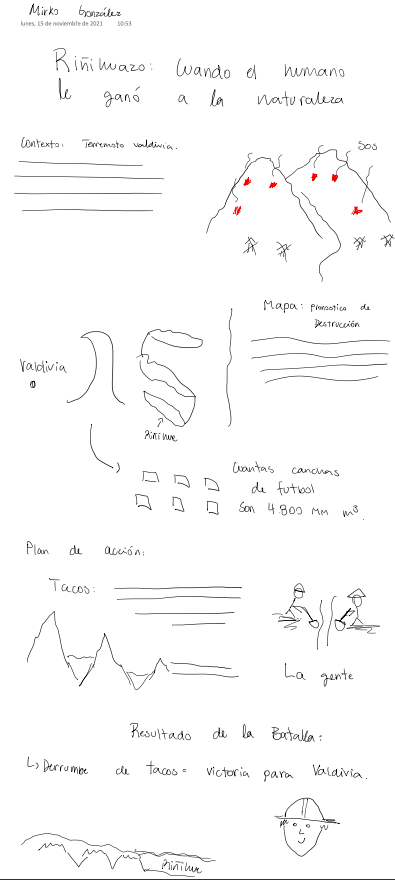 Mirko González
lunes, 15 de noviembre de 2021 10:53
Riñihuazo: Cuando el humano
le ganó a la naturaleza
Contexto: Terremoto Valdivia.
SOS
Mapa: pronostico de
Destrucción
Valdivia
Riñihue
Cuantas canchas
de futbol
Son 4.800 MM m³.
Plan de acción:
Tacos:
La gente
Resultado de la Batalla:
↳ Derrumbe de tacos = victoria para Valdivia.
Riñihue